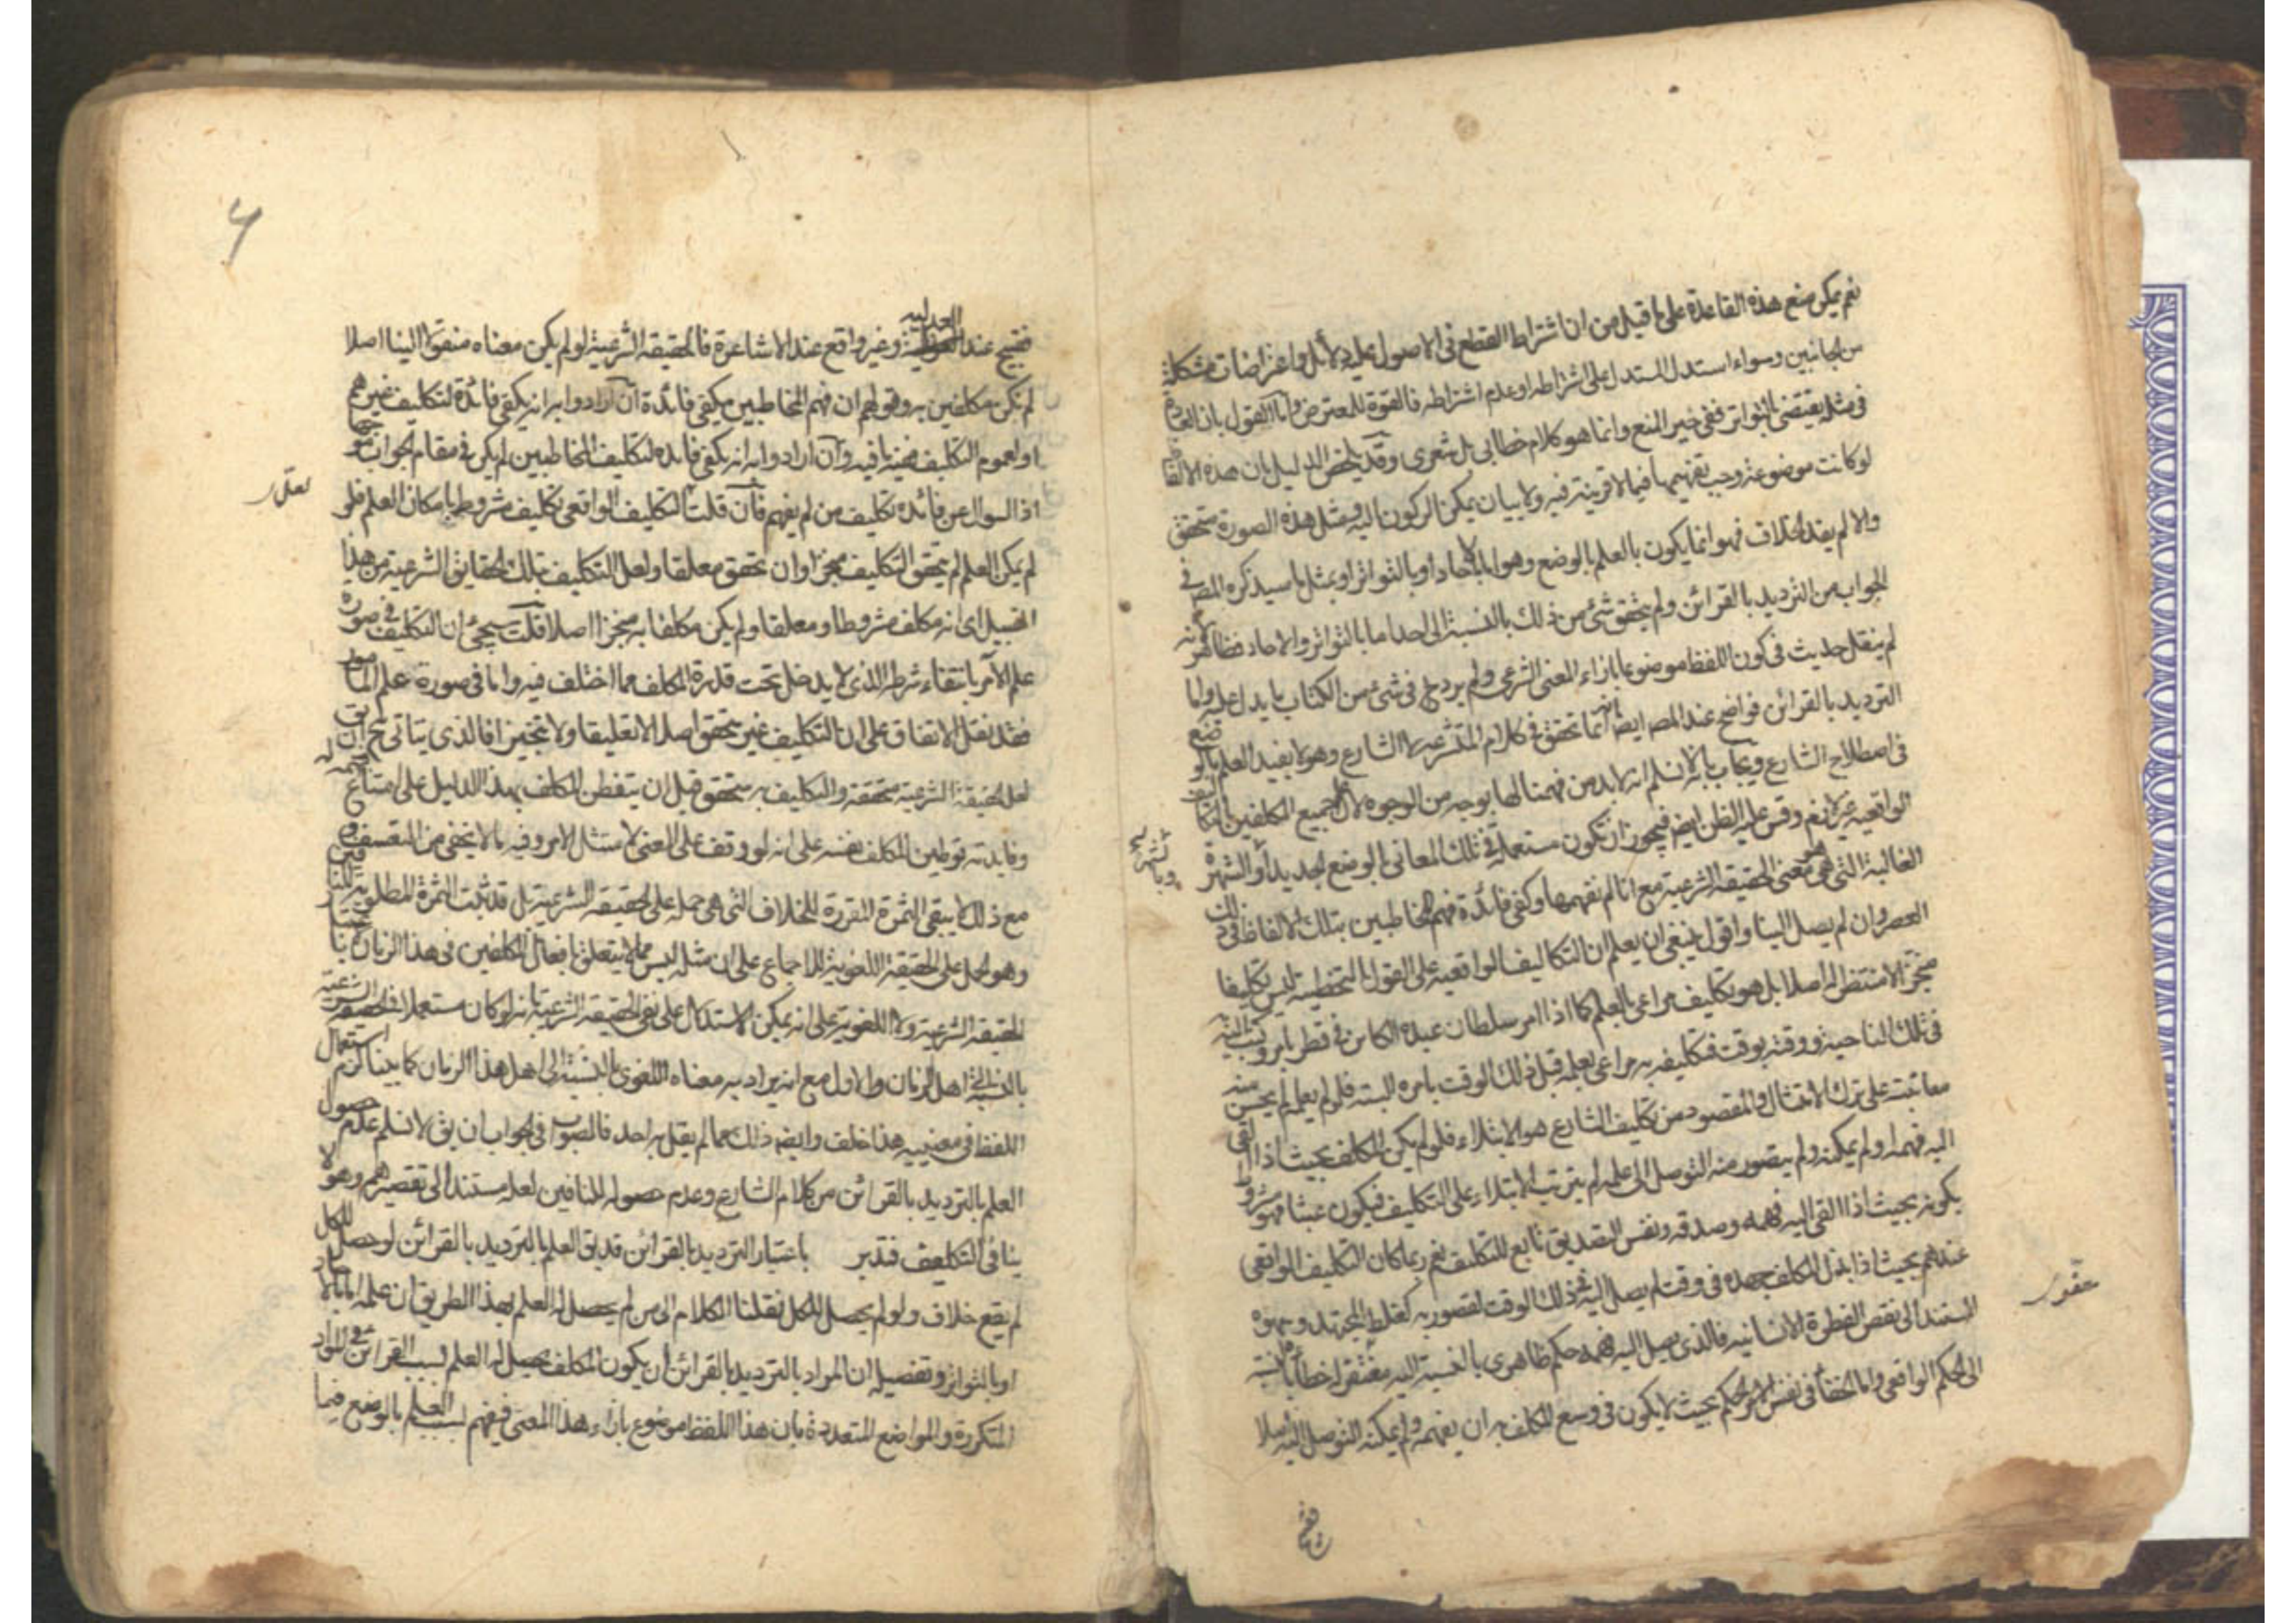 نعم يمكن منع هذه القاعدة على ما قيل من ان اشتراط القطع في الاصول عليه دلائل واعتراضات متشكلة
من الجانبين وسواء استدل المستدل على اشتراطه او عدم اشتراطه فالقوة للمعترض واما القول بان العادة
في مثله يقتضي بالتواتر ففي حيز المنع وانما هو كلام خطابي بل شعري وقد يلخص الدليل بان هذه الالفا
لو كانت موضوعة وجب تفهيمها فيما لا قرينة فيه ولا بيان يمكن الركون اليه في مثل هذه الصورة يتحقق
والا لم يفد الخلاف فهو انما يكون بالعلم بالوضع وهو اما بالآحاد او بالتواتر او بمثل ما سيذكره المص في
الجواب من الترديد بالقرائن ولم يتحقق شئ من ذلك بالنسبة الى احد اما بالتواتر والآحاد فظاهر
لم ينقل حديث في كون اللفظ موضوعا بازاء المعنى الشرعي ولم يرد في شئ من الكتاب ما يدل عليه واما
الترديد بالقرائن فواضح عند المص ايضا انه انما تحقق في كلام المتشرعة لا الشارع وهو لا يفيد العلم بالوضع
في اصطلاح الشارع ويجاب بانه لا نسلم انه لا بد من فهمنا لها بوجه من الوجوه لان جميع المكلفين
الواقعية وقس عليه الظن ايض فيجوز ان تكون مستعملة في تلك المعاني بالوضع الجديد او الشهرة
الغالبة التي هي معنى الحقيقة الشرعية مع انا لم نفهمها وكفى فائدة فهم المخاطبين بتلك الالفاظ في ذلك
العصر وان لم يصل الينا واقول ينبغي ان يعلم ان التكاليف الواقعية على القول بالتخطئة ليس تكليفا
منجزا لا منتظر له اصلا بل هو تكليف مراعى بالعلم كما اذا امر سلطان عبده الكائن في قطر بامر
في تلك الناحية ووقته بوقت فتكليفه به مراعى بعلمه قبل ذلك الوقت بامره البتة فلو لم يعلم لم يحسن منه
معاتبته على ترك الامتثال والمقصود من تكليف الشارع هو الابتلاء فلو لم يكن المكلف بحيث اذا القى
اليه فهمه او لم يمكنه ولم يتصور منه التوصل الى علمه لم يترتب الابتلاء على التكليف فيكون عبثا فهو مشروط
بكونه بحيث اذا القى اليه فهمه وصدقه ونفس التصديق تابع للتكليف نعم ربما كان التكليف الواقعي
عندهم بحيث اذا بذل المكلف جهده في وقت لم يصل اليه في ذلك الوقت لقصور به كغلط المجتهد وسهوه
المستند الى نقص الفطرة الانسانية فالذي يصل اليه فهمه حكم ظاهري بالنسبة اليه مغتفر خطأه بالنسبة
الى الحكم الواقعي واما الخفاء في نفس الحكم بحيث لا يكون في وسع المكلف به ان يفهمه ولم يمكنه التوصل اليه اصلا
العدلية
فقبيح عند وغير واقع عند الاشاعرة فالحقيقة الشرعية لو لم يكن معناه منقولا الينا اصلا
لم نكن مكلفين به وقولهم ان فهم المخاطبين يكفي فائدة ان ارادوا به انه يكفي فائدة لتكليف غيرهم
او لعموم التكليف ففيه ما فيه وان ارادوا به انه يكفي فائدة لتكليف المخاطبين لم يكن في مقام الجواب
اذ السؤال عن فائدة تكليف من لم يفهم فان قلت التكليف الواقعي تكليف مشروط بامكان العلم فلو
لم يكن العلم لم يتحقق التكليف منجزا وان تحقق معلقا ولعل التكليف بتلك الحقايق الشرعية من هذا
القبيل اي انه مكلف مشروطا ومعلقا ولم يكن مكلفا به منجزا اصلا قلت سيجئ ان التكليف في صورة
علم الآمر بانتفاء شرطه الذي لا يدخل تحت قدرة المكلف مما اختلف فيه واما في صورة علم المأمور
فقد نقل الاتفاق على ان التكليف غير متحقق اصلا لا تعليقا ولا تنجيزا فالذي يتأتى ح ان يق
لعل الحقيقة الشرعية متحققة والتكليف به متحقق قبل ان يتفطن المكلف بهذا الدليل على امتناع
وفايدته توطين المكلف نفسه على انه لو وقف على المعنى لامتثل الامر وفيه ما لا يخفى من التعسف و
مع ذلك لا يبقى الثمرة المقررة للخلاف التي هي حمله على الحقيقة الشرعية بل قد ثبت الثمرة المطلوبة
وهو الحمل على الحقيقة اللغوية للاجماع على ان مثله ليس مما لا يتعلق بافعال المكلفين في هذا الزمان
الحقيقة الشرعية ولا اللغوية على انه يمكن الاستدلال على نفي الحقيقة الشرعية بانه لو كان مستعملا في الحقيقة الشرعية
بالنسبة الى اهل الزمان والاول مع انه يراد به معناه اللغوي بالنسبة الى اهل هذا الزمان كما بينا لزم استعمال
اللفظ في معنييه هذا خلف وايضا ذلك مما لم يقل به احد فالصواب في الجواب ان يق لا نسلم عدم حصول
العلم بالترديد بالقرائن من كلام الشارع وعدم حصوله للنافين لعله مستند الى تقصيرهم وهو لا
ينافي التكليف فتدبر باعتبار الترديد بالقرائن قد يق العلم بالترديد بالقرائن لو حصل للكل
لم يقع خلاف ولو لم يحصل للكل نقلنا الكلام الى من لم يحصل له العلم بهذا الطريق ان علمه اما بالآحاد
او بالتواتر وتفصيله ان المراد بالترديد بالقرائن ان يكون المكلف يحصل له العلم بسبب القرائن في المواد
المتكررة والمواضع المتعددة بان هذا اللفظ موضوع بازاء هذا المعنى فيفهم بسبب العلم بالوضع فيما